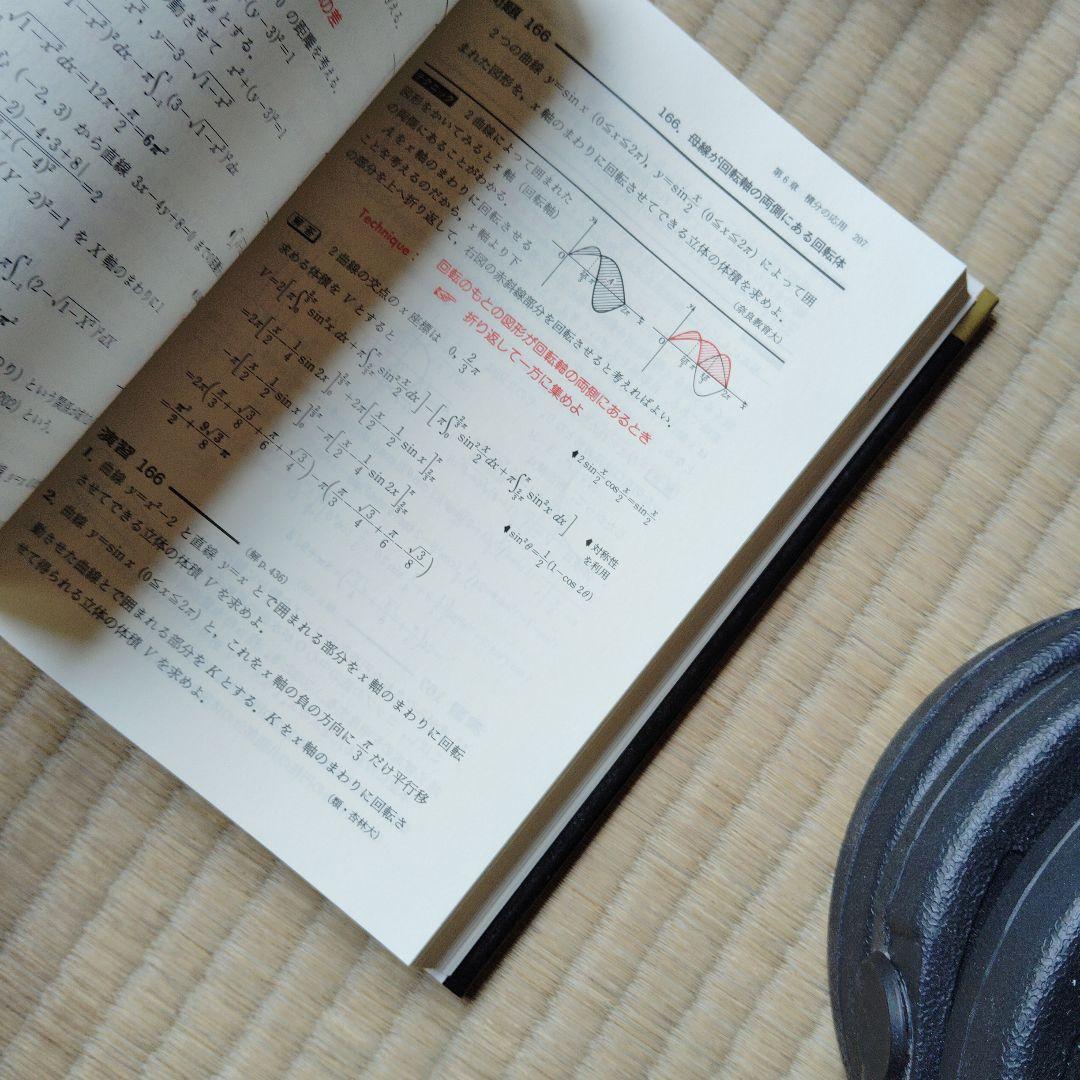 の差
0 の距離を考える.
x²+(y-3)²=1
y=3-√1-x²
∫₋₁¹(3-√1-x²)²dx
√1-x² dx=12π・π/2=6π²
(-2, 3) から直線 3x-4y+8=0
-2)-4・3+8|/+(-4)² =2
(Y-2)²=1 を X 軸のまわりに
π∫₋₁¹(2-√1-X²)²dX
という.
第6章 積分の応用 207
166. 母線が回転軸の両側にある回転体
問題 166
2つの曲線 y=sin x (0≦x≦2π), y=sin x/2 (0≦x≦2π) によって囲
まれた図形を, x 軸のまわりに回転させてできる立体の体積を求めよ.
(奈良教育大)
テクニック
2曲線によって囲まれた
図形をかいてみると x 軸 (回転軸)
の両側にあることがわかる.
A を x 軸のまわりに回転させる
ことを考えるのだから, x 軸より下
の部分を上へ折り返して, 右図の赤斜線部分を回転させると考えればよい.
Technique :
回転のもとの図形が回転軸の両側にあるとき
☞ 折り返して一方に集めよ
解答
2曲線の交点の x 座標は 0, 2/3 π
求める体積を V とすると
V=2[π∫₀^{2/3 π} sin²x dx+π∫_{2/3 π}^{π} sin² x/2 dx]-[π∫₀^{2/3 π} sin² x/2 dx+π∫_{2/3 π}^{π} sin²x dx]
=2π[x/2-1/4 sin 2x]₀^{2/3 π}+2π[x/2-1/2 sin x]_{2/3 π}^{π}
-π[x/2-1/2 sin x]₀^{2/3 π}-π[x/2-1/4 sin 2x]_{2/3 π}^{π}
=2π(π/3+√3/8+π/6+√3/4)-π(π/3-√3/4+π/6-√3/8)
=π²/2+9√3/8 π
♠2 sin x/2 cos x/2=sin x/2
♠対称性
を利用
♠sin²θ=1/2(1-cos 2θ)
演習 166
(解 p.436)
1. 曲線 y=x²-2 と直線 y=x とで囲まれる部分を x 軸のまわりに回転
させてできる立体の体積 V を求めよ.
2. 曲線 y=sin x (0≦x≦2π) と, これを x 軸の負の方向に π/3 だけ平行移
動させた曲線とで囲まれる部分を K とする. K を x 軸のまわりに回転さ
せて得られる立体の体積 V を求めよ.
(類・杏林大)